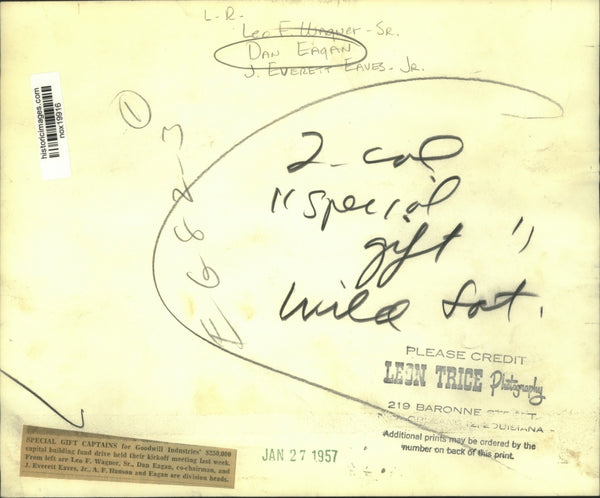 L-R.
Leo F. Wagner - Sr.
Dan Eagan
J. Everett Eaves - Jr.
historicimages.com
nox19916
1
E-682-3
2-col
"special
gift"
Sat.
PLEASE CREDIT
LEON TRICE Photography
219 BARONNE
LOUISIANA -
Additional prints may be ordered by the
number on back of this print.
JAN 27 1957
SPECIAL GIFT CAPTAINS for Goodwill Industries' $250,000
capital building fund drive held their kickoff meeting last week.
From left are Leo F. Wagner, Sr., Dan Eagan, co-chairman, and
J. Everett Eaves, Jr. A. F. Hanson and Eagan are division heads.